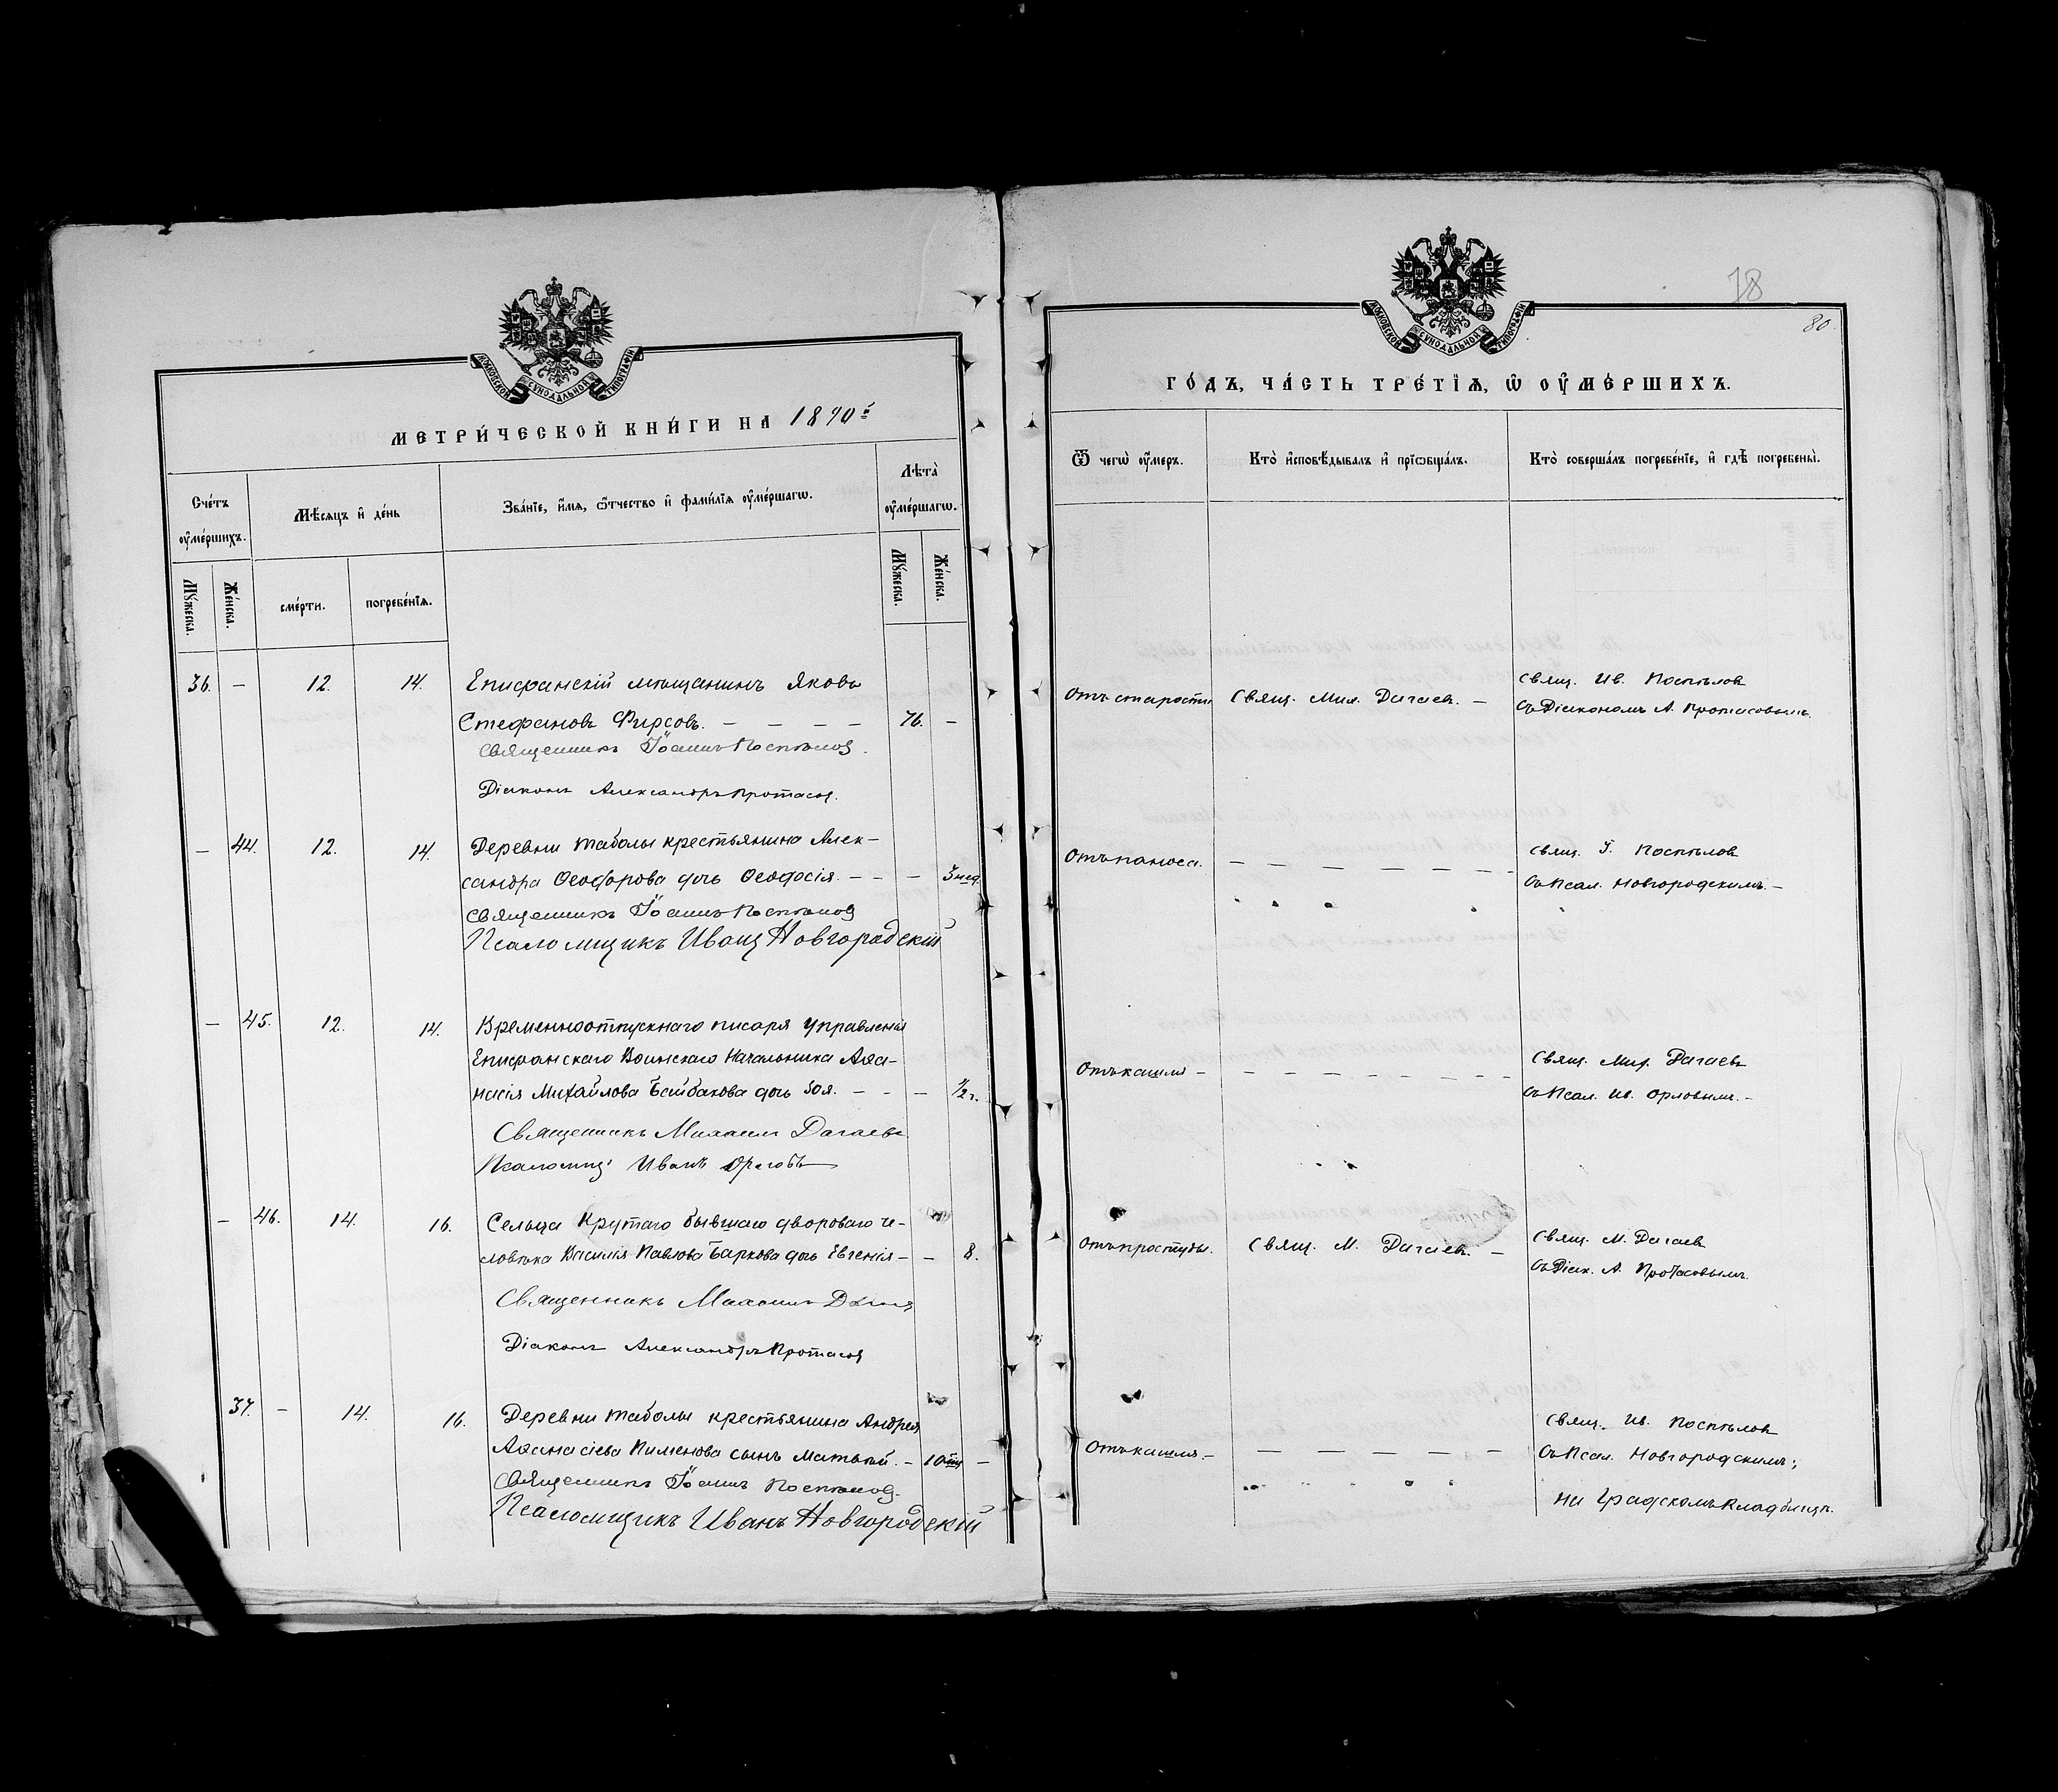 МОСКОВСКОЙ СѴНОДАЛЬНОЙ ТИПОГРАФІИ
МЕТРИ́ЧЕСКОЙ КНИ́ГИ НА 1890й
Сче́тъ оу҆ме́ршихъ.
Мѣ́сяцъ и҆ де́нь
Зва́нїе, и҆́мѧ, ѻ҆́тчество и҆ фами́лїѧ оу҆ме́ршагѡ.
Лѣта̀ оу҆ме́ршагѡ.
Мꙋ́жеска.
Же́нска.
сме́рти.
погребе́нїѧ.
Мꙋ́жеска.
Же́нска.
36. — 12. 14. Епифанскій мѣщанинъ Яковъ
Стефановъ Фирсовъ. — — — — 76. —
Священникъ Іоаннъ Поспѣловъ.
Діаконъ Александръ Протасов.
— 44. 12. 14. Деревни Таболы крестьянина Алек-
сандра Ѳеодорова дочь Ѳеодосія. — — — 3 нед.
Священникъ Іоаннъ Поспѣловъ
Псаломщикъ Иванъ Новгородскій
— 45. 12. 14. Временноотпускнаго писаря Управленія
Епифанскаго Воинскаго Начальника Аѳа-
насія Михайлова Байбакова дочь Зоя. — — — 1/2 г.
Священникъ Михаилъ Дагаевъ
Псаломщ: Иванъ Орловъ
— 46. 14. 16. Сельца Крутаго бывшаго двороваго че-
ловѣка Василія Павлова Баркова дочь Евгенія — — 8.
Священникъ Михаилъ Дагаев
Діаконъ Александръ Протасов
37. — 14. 16. Деревни Таболы крестьянина Андрея
Аѳанасіева Пименова сынъ Матвѣй. — 10 —
Священникъ Іоаннъ Поспѣловъ.
Псаломщикъ Иванъ Новгородскій
18
80
МОСКОВСКОЙ СѴНОДАЛЬНОЙ ТИПОГРАФІИ
ГО́ДЪ, ЧА́СТЬ ТРЕ́ТЇѦ, Ѡ҆ ОУ҆МЕ́РШИХЪ.
Ѿ чегѡ̀ оу҆́меръ.
Кто̀ и҆сповѣ́дывалъ и҆ прїѡбща́лъ.
Кто̀ соверша́лъ погребе́нїе, и҆ гдѣ̀ погребены̀.
Отъ старости Свящ. Мих. Дагаевъ. —
Свящ. Ив. Поспѣловъ
съ Діакономъ А. Протасовымъ.
Отъ поноса. — — — — — —
Свящ. І. Поспѣловъ
съ Псал. Новгородскимъ. —
Отъ кашля — — — — — — —
Свящ. Мих. Дагаевъ
съ Псал. Ив. Орловымъ. —
Отъ простуды. Свящ. М. Дагаевъ. —
Свящ. М. Дагаевъ
съ Діак. А. Протасовымъ.
Отъ кашля. — — — — — —
Свящ. Ив. Поспѣловъ
съ Псал. Новгородскимъ;
на Градскомъ кладбищѣ.